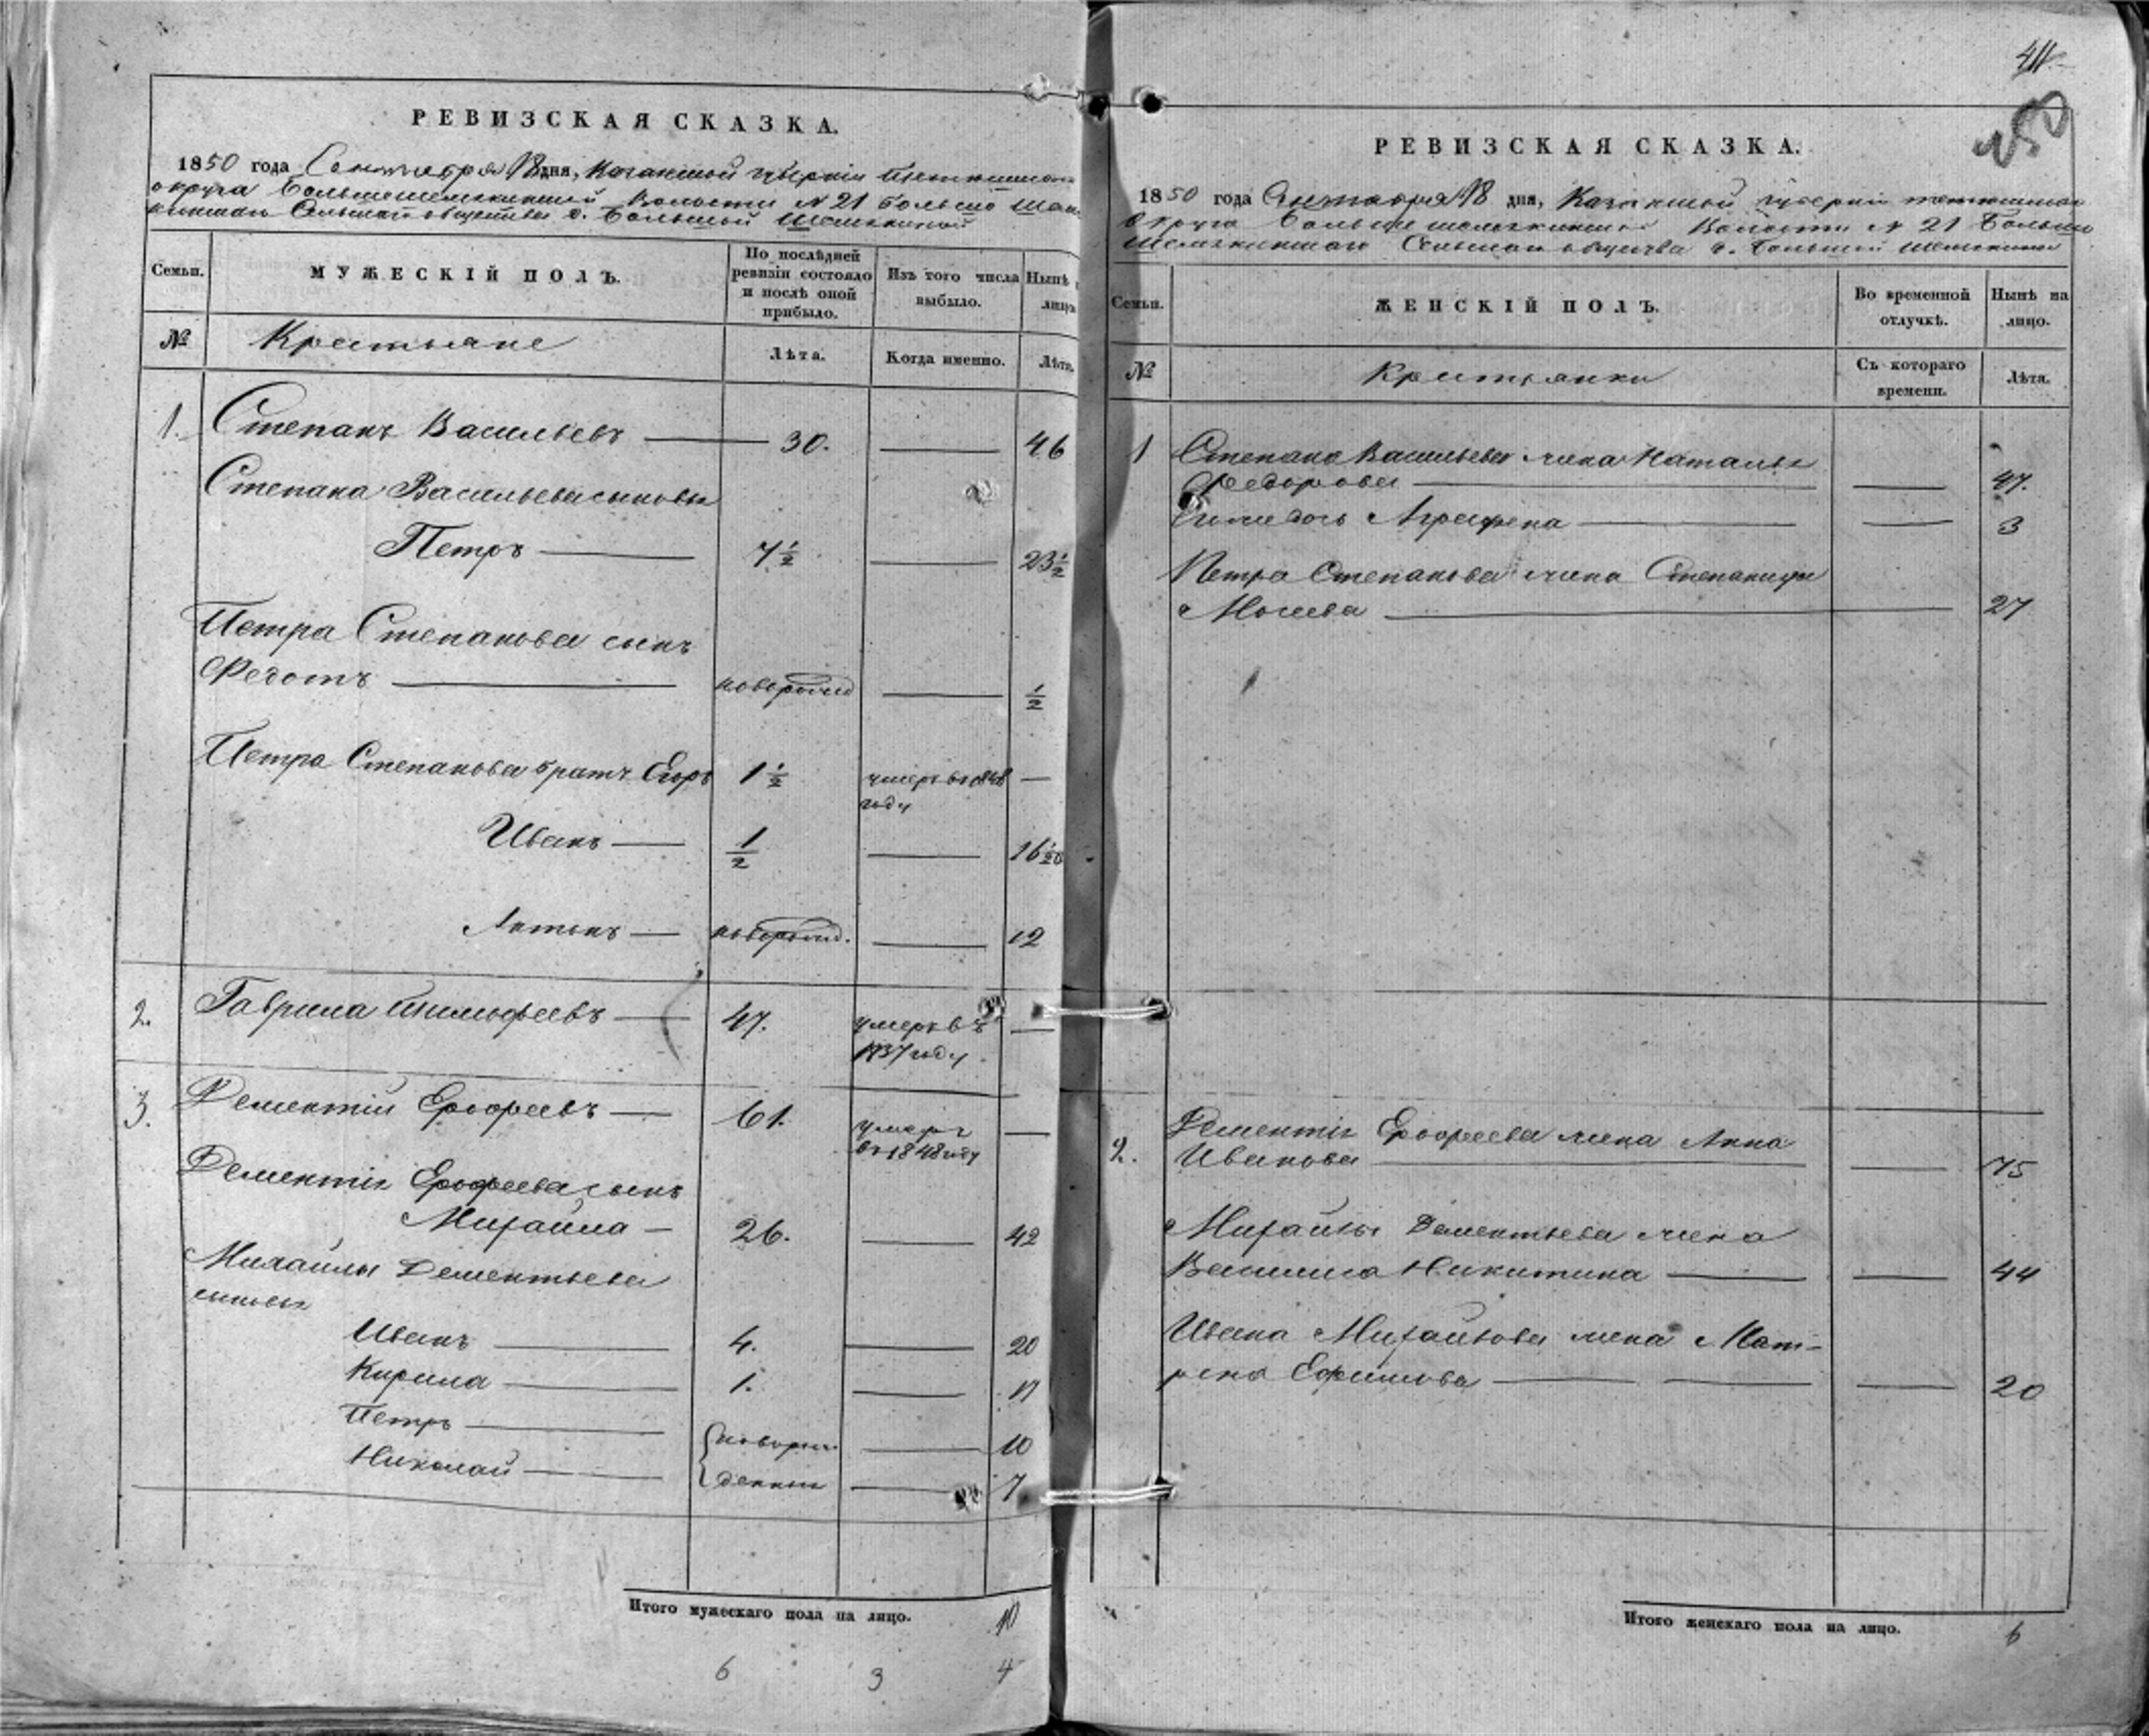 РЕВИЗСКАЯ СКАЗКА.
1850 года Сентября 18 дня, Казанской губернии Тетюшскаго
округа Большешемякинской Волости № 21 Большо Шемя-
кинскаго Сельскаго общества д. Большой Шемякиной
Семьи.
МУЖЕСКІЙ ПОЛЪ.
По послѣдней ревизіи состояло и послѣ оной прибыло.
Изъ того числа выбыло.
Нынѣ
лицо
№
Крестьяне
Лѣта.
Когда именно.
Лѣта.
1. Степанъ Васильевъ — 30. — 46
Степана Васильева сыновья
Петръ — 7½ — 23½
Петра Степанова сынъ
Федотъ — новорожд — ½
Петра Степанова братъ Егоръ 1½ умеръ въ 1848 —
году
Иванъ — ½ — 16½
Антонъ — новорожд. — 12
2. Гаврила Тимофеевъ — 47. умеръ въ —
1837 году.
3. Дементій Ерофеевъ — 61. умеръ —
въ 1848 году
Дементія Ерофеева сынъ
Михайла — 26. — 42
Михайлы Дементьева
сыновья
Иванъ — 4. — 20
Кирила — 1. — 17
Петръ — новорож- — 10
Николай — денные — 7
Итого мужескаго пола на лицо. 10
6 3 4
411
450
РЕВИЗСКАЯ СКАЗКА.
1850 года Сентября 18 дня, Казанской губерніи тетюшскаго
округа Большешемякинской Волости № 21 Больше
Шемякинскаго Сельскаго общества д. Большой Шемякиной
Семьи.
ЖЕНСКІЙ ПОЛЪ.
Во временной отлучкѣ.
Нынѣ на лицо.
№
Крестьянки
Съ котораго времени.
Лѣта.
1 Степана Васильева жена Наталья
Федорова — — 47.
дочь Аграфена — — 3
Петра Степанова жена Степанида
Мосева — 27
2. Дементія Ерофеева жена Анна
Иванова — — 75
Михайлы Дементьева жена
Василиса Никитина — — 44
Ивана Михайлова жена Мат-
рена Ефимова — — 20
Итого женскаго пола на лицо. 6